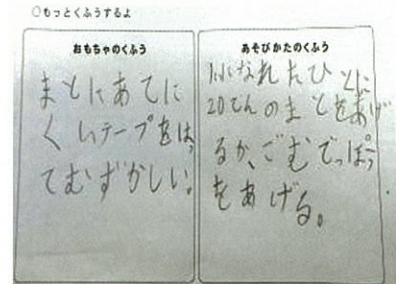 ○もっとくふうするよ
おもちゃのくふう
まとにあてに
くいテープをはっ
てむずかしい。
あそびかたのくふう
1いになれたひとに
20てんのまとをあげ
るか、ごむでっぽう
をあげる。